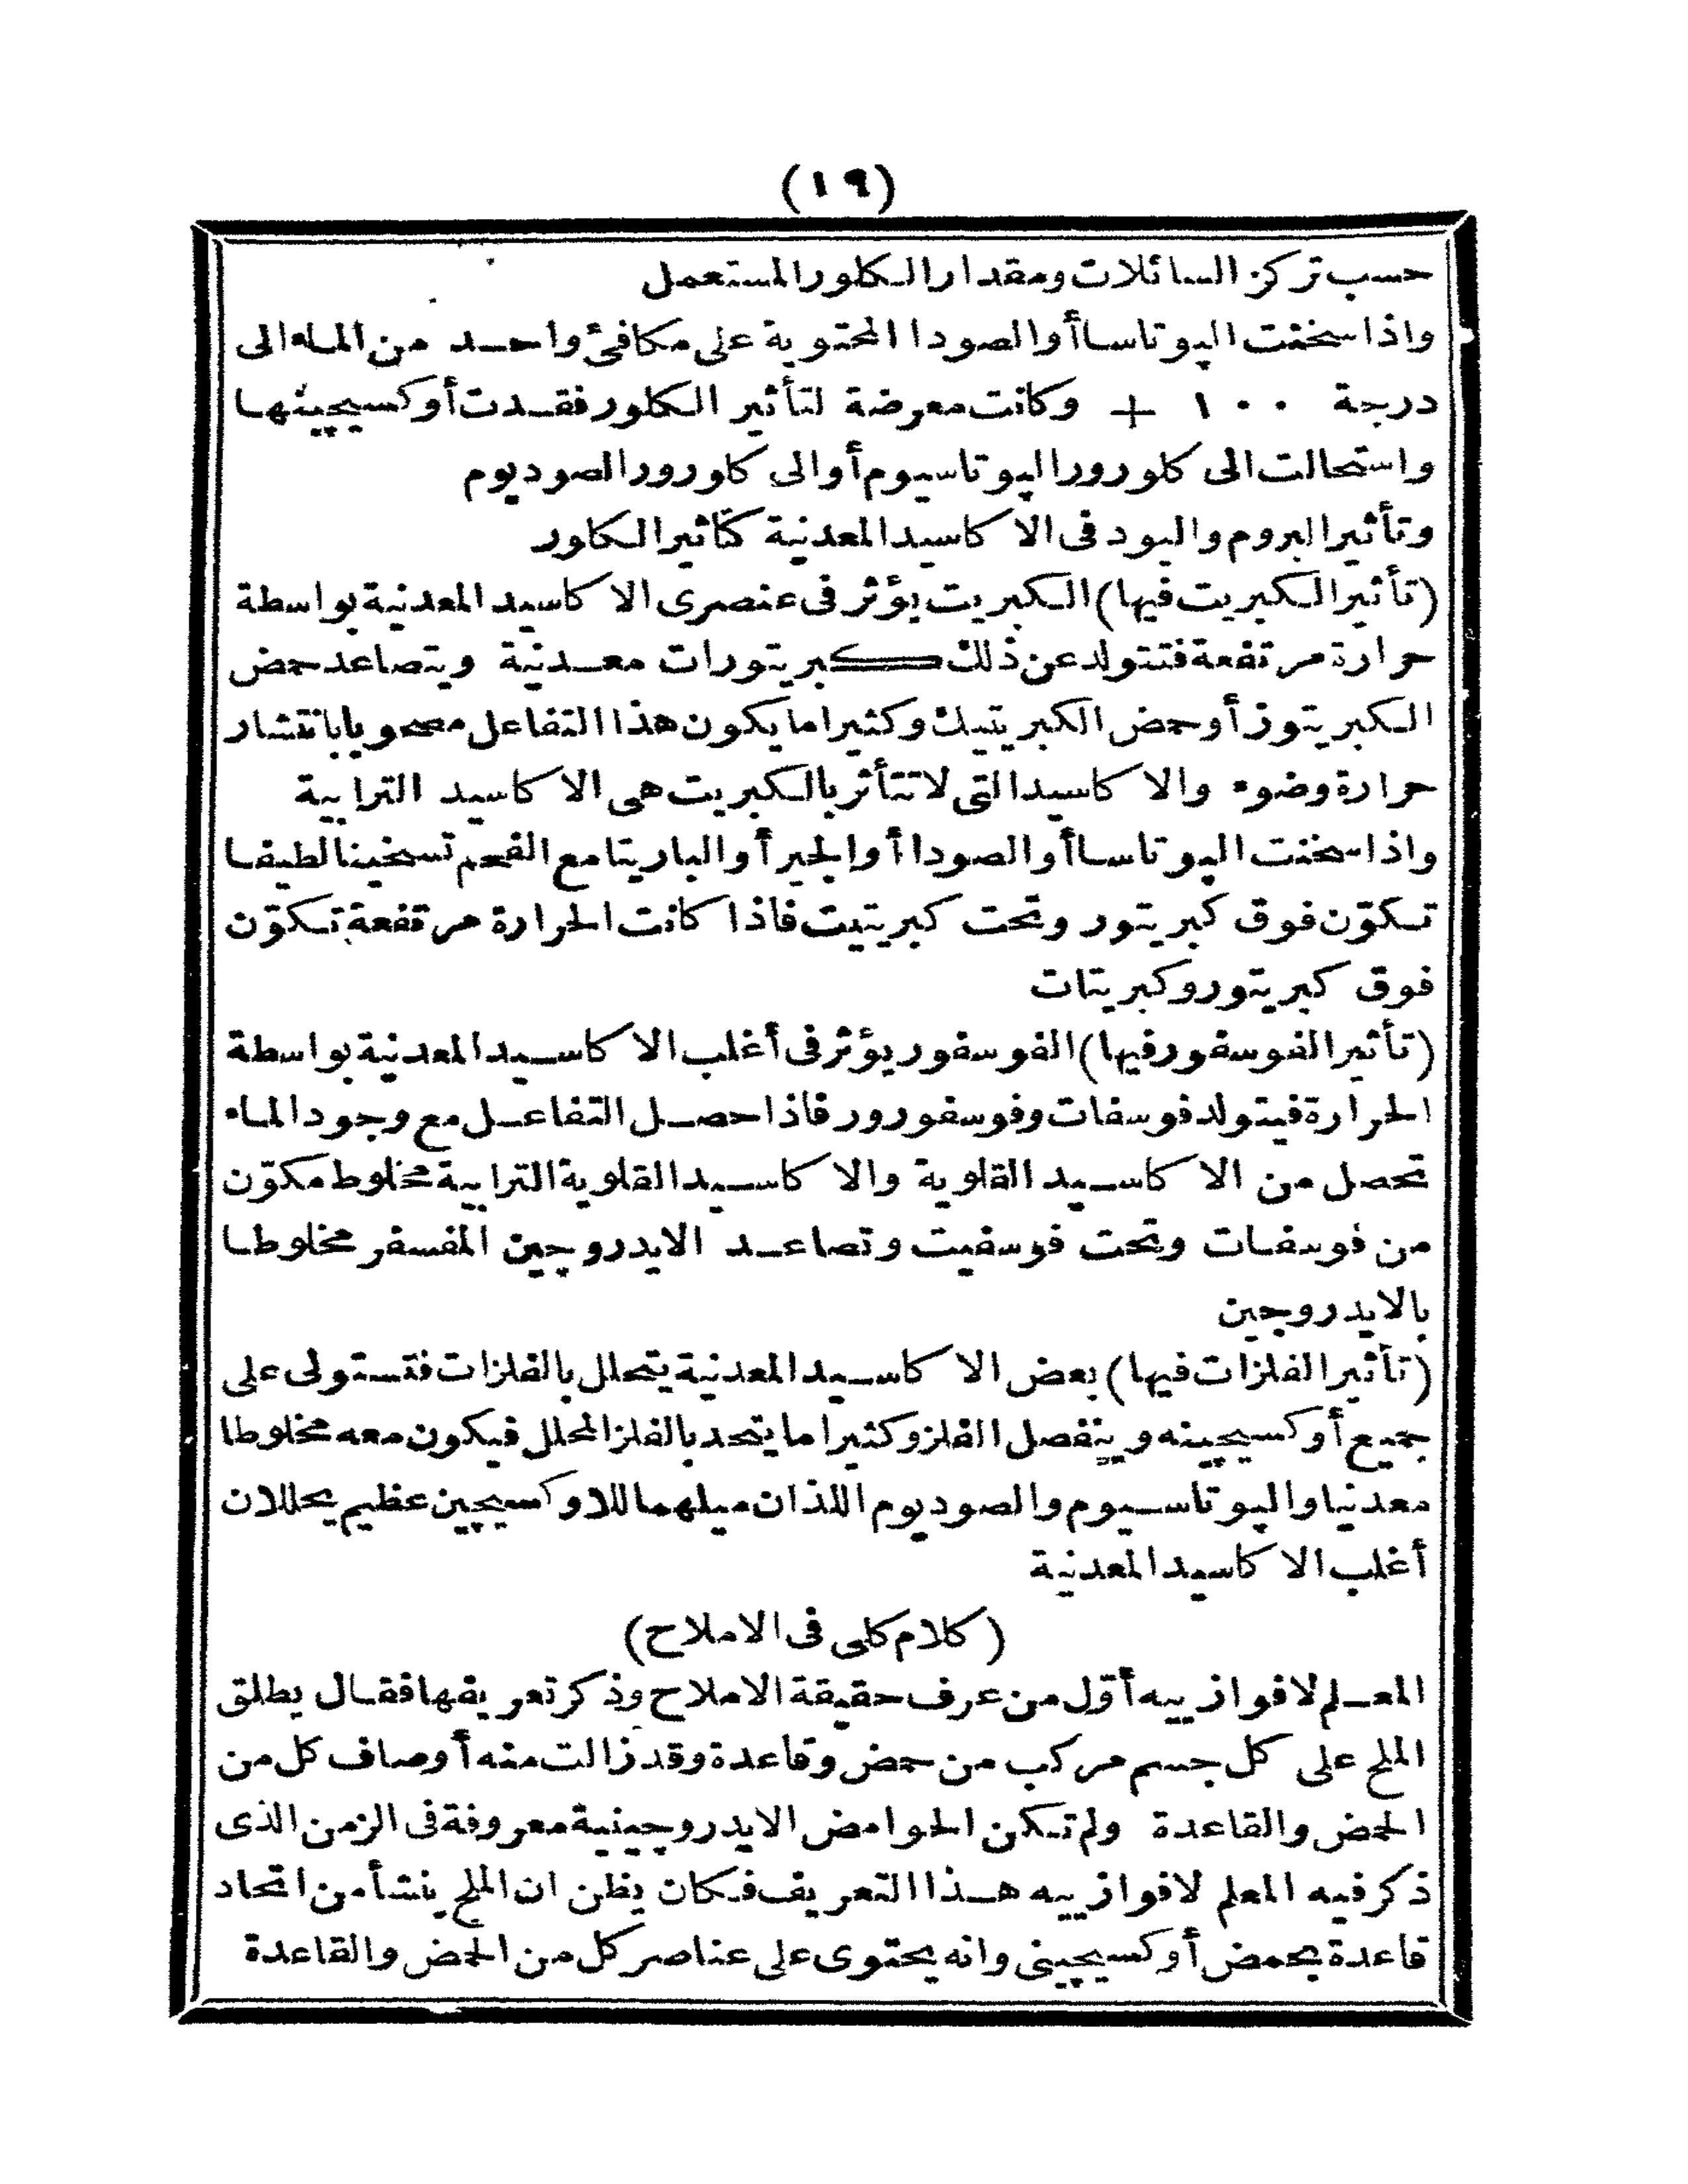 (١٩)
حسب تركز السائلات ومقدار الكلور المستعمل
واذا سخنت الپوتاسا أو الصودا المحتوية على مكافئ واحد من الماء الى
درجة ١٠٠ + وكانت معرضة لتأثير الكلور فقدت أوكسيچينها
واستحالت الى كلورور الپوتاسيوم أو الى كلورور الصوديوم
وتأثير البروم واليود فى الاكاسيد المعدنية كتأثير الكلور
(تأثير الكبريت فيها) الكبريت يؤثر فى عنصرى الاكاسيد المعدنية بواسطة
حرارة مرتفعة فتتولد عن ذلك كبريتورات معدنية ويتصاعد حمض
الكبريتوز أو حمض الكبريتيك وكثيرا ما يكون هذا التفاعل مصحوبا بانتشار
حرارة وضوء والاكاسيد التى لا تتأثر بالكبريت هى الاكاسيد الترابية
واذا سخنت الپوتاسا أو الصودا أو الجير أو الباريتا مع الفحم تسخينا لطيفا
تكوّن فوق كبريتور وتحت كبريتيت فاذا كانت الحرارة مرتفعة تكوّن
فوق كبريتور وكبريتات
(تأثير الفوسفور فيها) الفوسفور يؤثر فى أغلب الاكاسيد المعدنية بواسطة
الحرارة فيتولد فوسفات وفوسفورور فاذا حصل التفاعل مع وجود الماء
تحصل من الاكاسيد القلوية والاكاسيد القلوية الترابية مخلوط مكوّن
من فوسفات وتحت فوسفيت وتصاعد الايدروچين المفسفر مخلوطا
بالايدروچين
(تأثير الفلزات فيها) بعض الاكاسيد المعدنية يتحلل بالفلزات فتستولى على
جميع أوكسيچينه وينفصل الفلز وكثيرا ما يتحد بالفلز المحلل فيكون معه مخلوطا
معدنيا والپوتاسيوم والصوديوم اللذان ميلهما للاوكسيچين عظيم يحللان
أغلب الاكاسيد المعدنية
(كلام كلى فى الاملاح)
المعلم لافوازييه أوّل من عرف حقيقة الاملاح وذكر تعريفها فقال يطلق
الملح على كل جسم مركب من حمض وقاعدة وقد زالت منه أوصاف كل من
الحمض والقاعدة ولم تكن الحوامض الايدروچينية معروفة فى الزمن الذى
ذكر فيه المعلم لافوازييه هذا التعريف فكان يظن ان الملح ينشأ من اتحاد
قاعدة بحمض أوكسيچينى وانه يحتوى على عناصر كل من الحمض والقاعدة